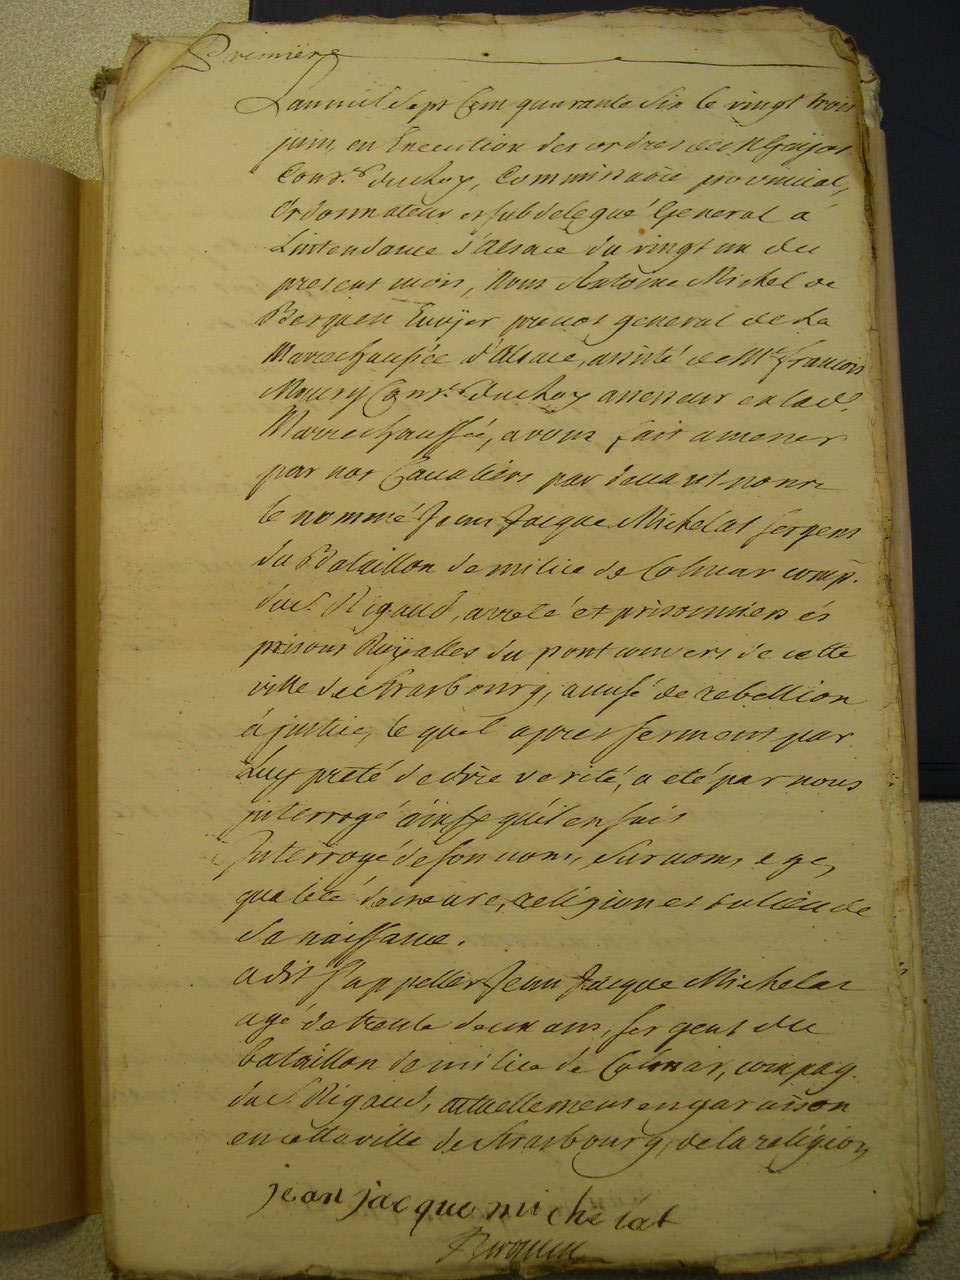 Premiere
Lan mil sept Cent quarante six le vingt trois
juin, en Execution des ordres de M Gayot
Conr. du Roy, Commissaire provincial,
Ordonnateur et subdelegué General a
Lintendance d'Alsace du vingt un du
present mois, Nous Antoine Michel de
Berquen Ecuÿer prevot general de La
Marechaussée d'Alsace, assisté de Me. francois
Moury Conr. du Roy assesseur en lad.
Marrechaussée, avons fait amener
par nos Cavaliers par devant nous
le nommé Jean Jacque Michelat sergent
du Bataillon de milice de Colmar comp.
du S. Rigaud, arreté et prisonniers és
prisons Roÿalles du pont couvers de cette
ville de Strasbourg, accusé de rebellion
á justice, le quel apres serment par
Luy preté de dire verité, a eté par nous
interrogé ainsÿ qu'il en suit
Interrogé de son nom, surnom, age,
qualité demeure, religion et du lieu de
Sa naissance.
a dit s'appeller Jean Jacque Michelat
agé de trente deux ans, sergent du
bataillon de milice de Colmar, compag.
du S. Rigaud, actuellement en garnison
en cette ville de Strasbourg, de la religion
jean jacque michelat
Berquen